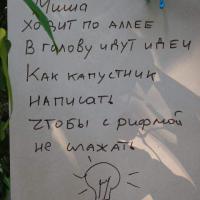 Миша
ходит по аллее
В голову идут идеи
Как капустник
написать
чтобы с рифмой
не лажать